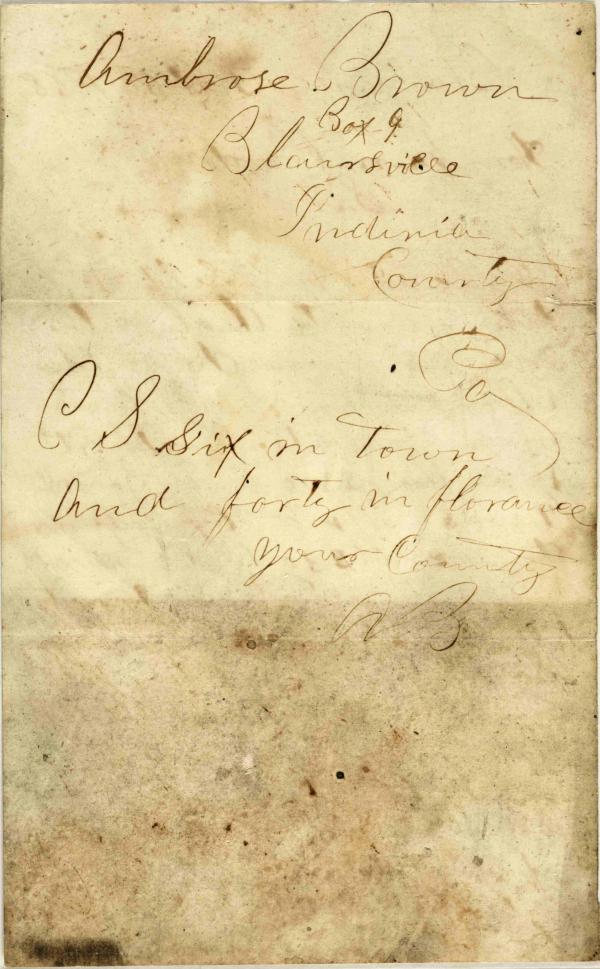 Ambrose Brown
Box 9
Blairsville
Indinia
County
Pa
P S six in town
and forty in florance
your County
A B